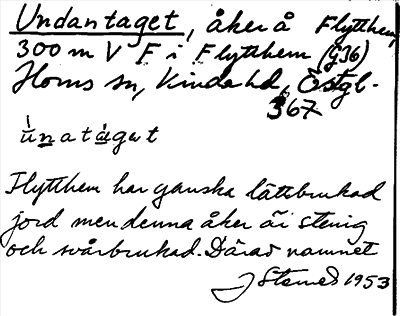 Undantaget, åker å Flytthem,
300 m V F i Flytthem (G36)
Horns sn, Kinda hd, Östgl.
367
ùnatàget
Flytthem har ganska lättbrukad
jord men denna åker är stenig
och svårbrukad. Därav namnet
J Stemed 1953